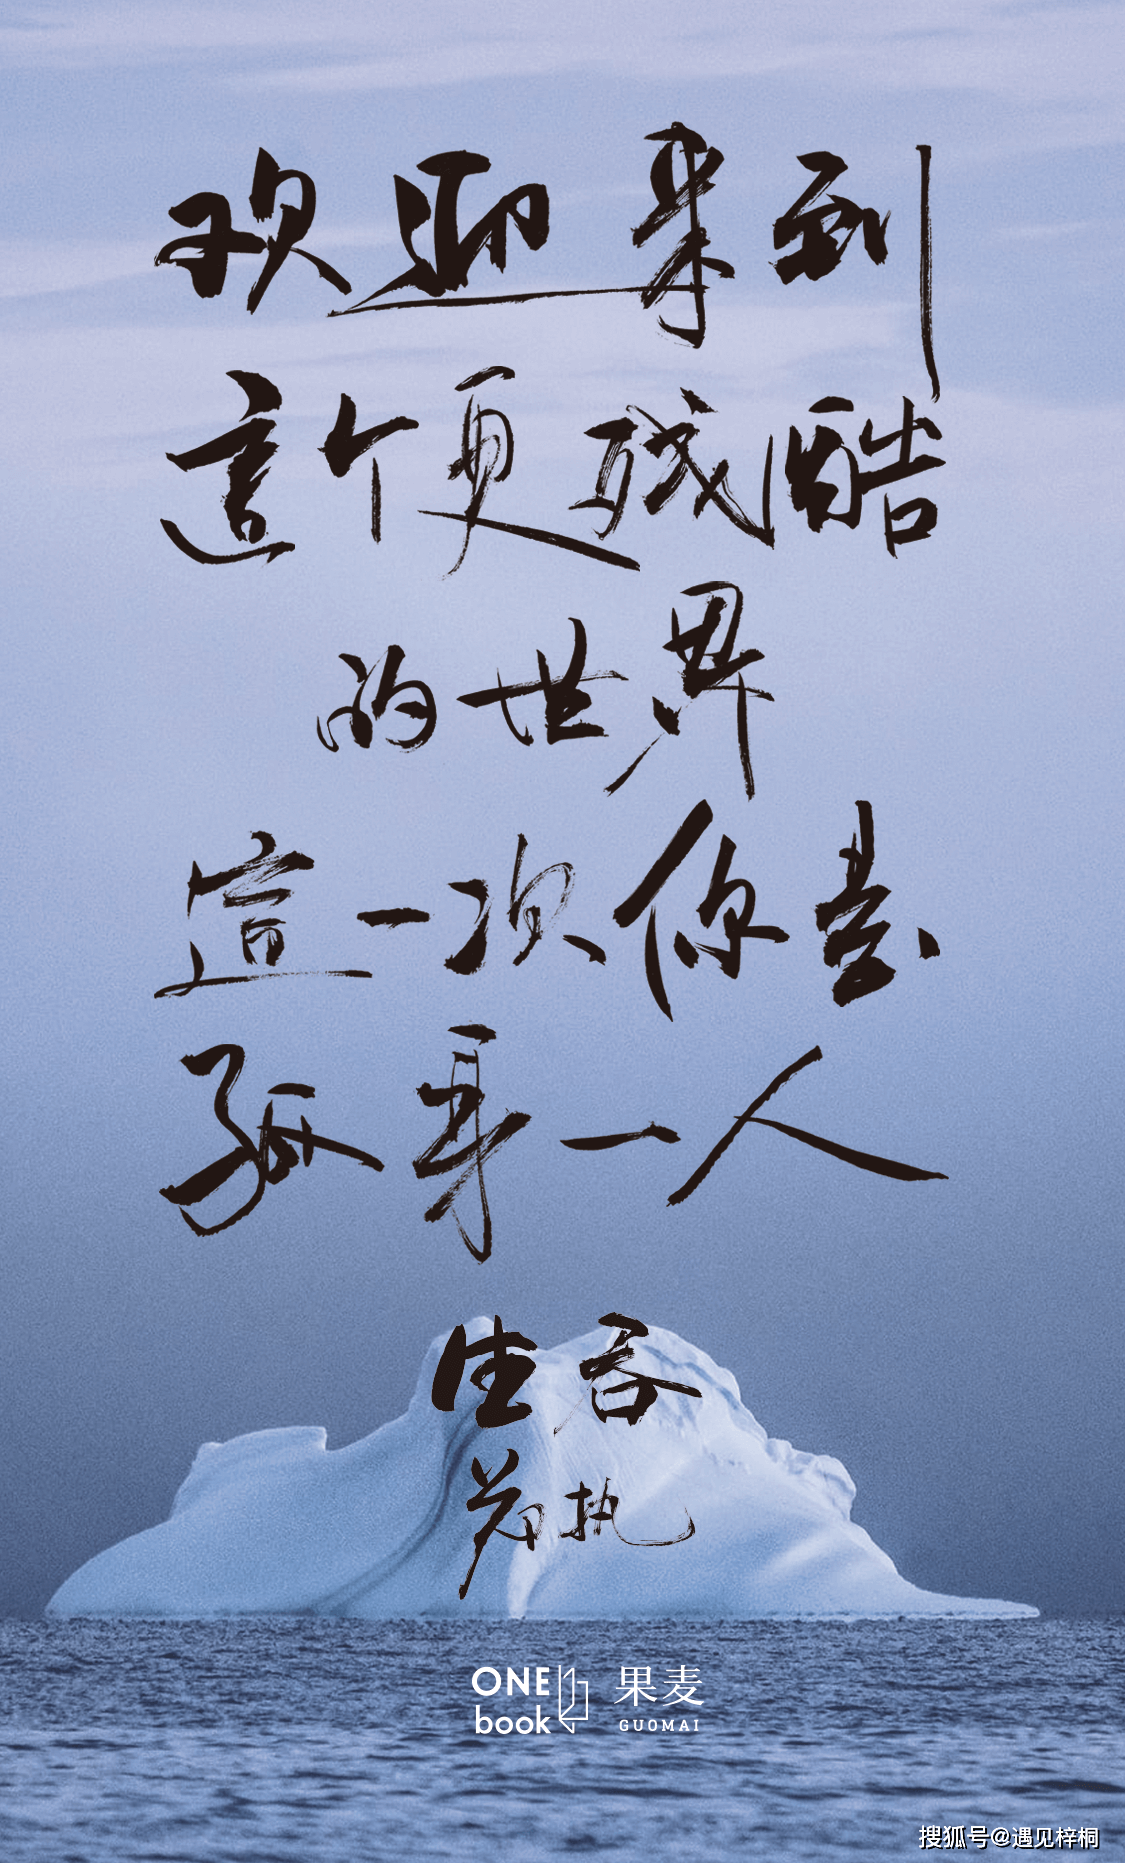 欢迎来到
這个更残酷
的世界
這一次你要
孤身一人
生吞
郑执
ONE 果麦
book GUOMAI
搜狐号@遇见梓桐